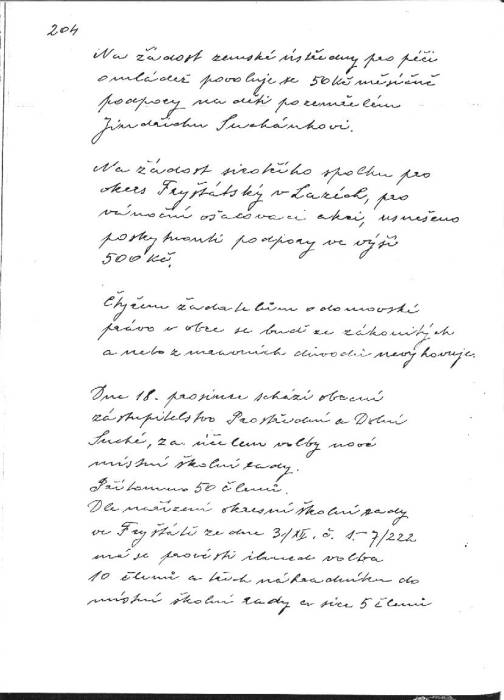 204
Na žádost zemské ústředny pro péči
o mládež povoluje se 50 Kč měsíčně
podpory na děti po zemřelém
Jindřichu Suchánkovi.
Na žádost sirotčího spolku pro
okres Fryštátský v Lazích, pro
vánoční ošacovací akci, usneseno
poskytnouti podpory ve výši
500 Kč.
Čtyřem žadatelům o domovské
právo v obce se buď ze zákonitých
a nebo z mravních důvodů nevyhovuje.
Dne 18. prosince schází obecní
zastupitelstvo Prostřední a Dolní
Suché, za účelem volby nové
místní školní rady.
Přítomno 50 členů.
Dle nařízení okresní školní rady
ve Fryštátě ze dne 31/XII. č. 1-7/222
má se provésti ihned volba
10 členů a těch náhradníku do
místní školní rady a sice 5 členů